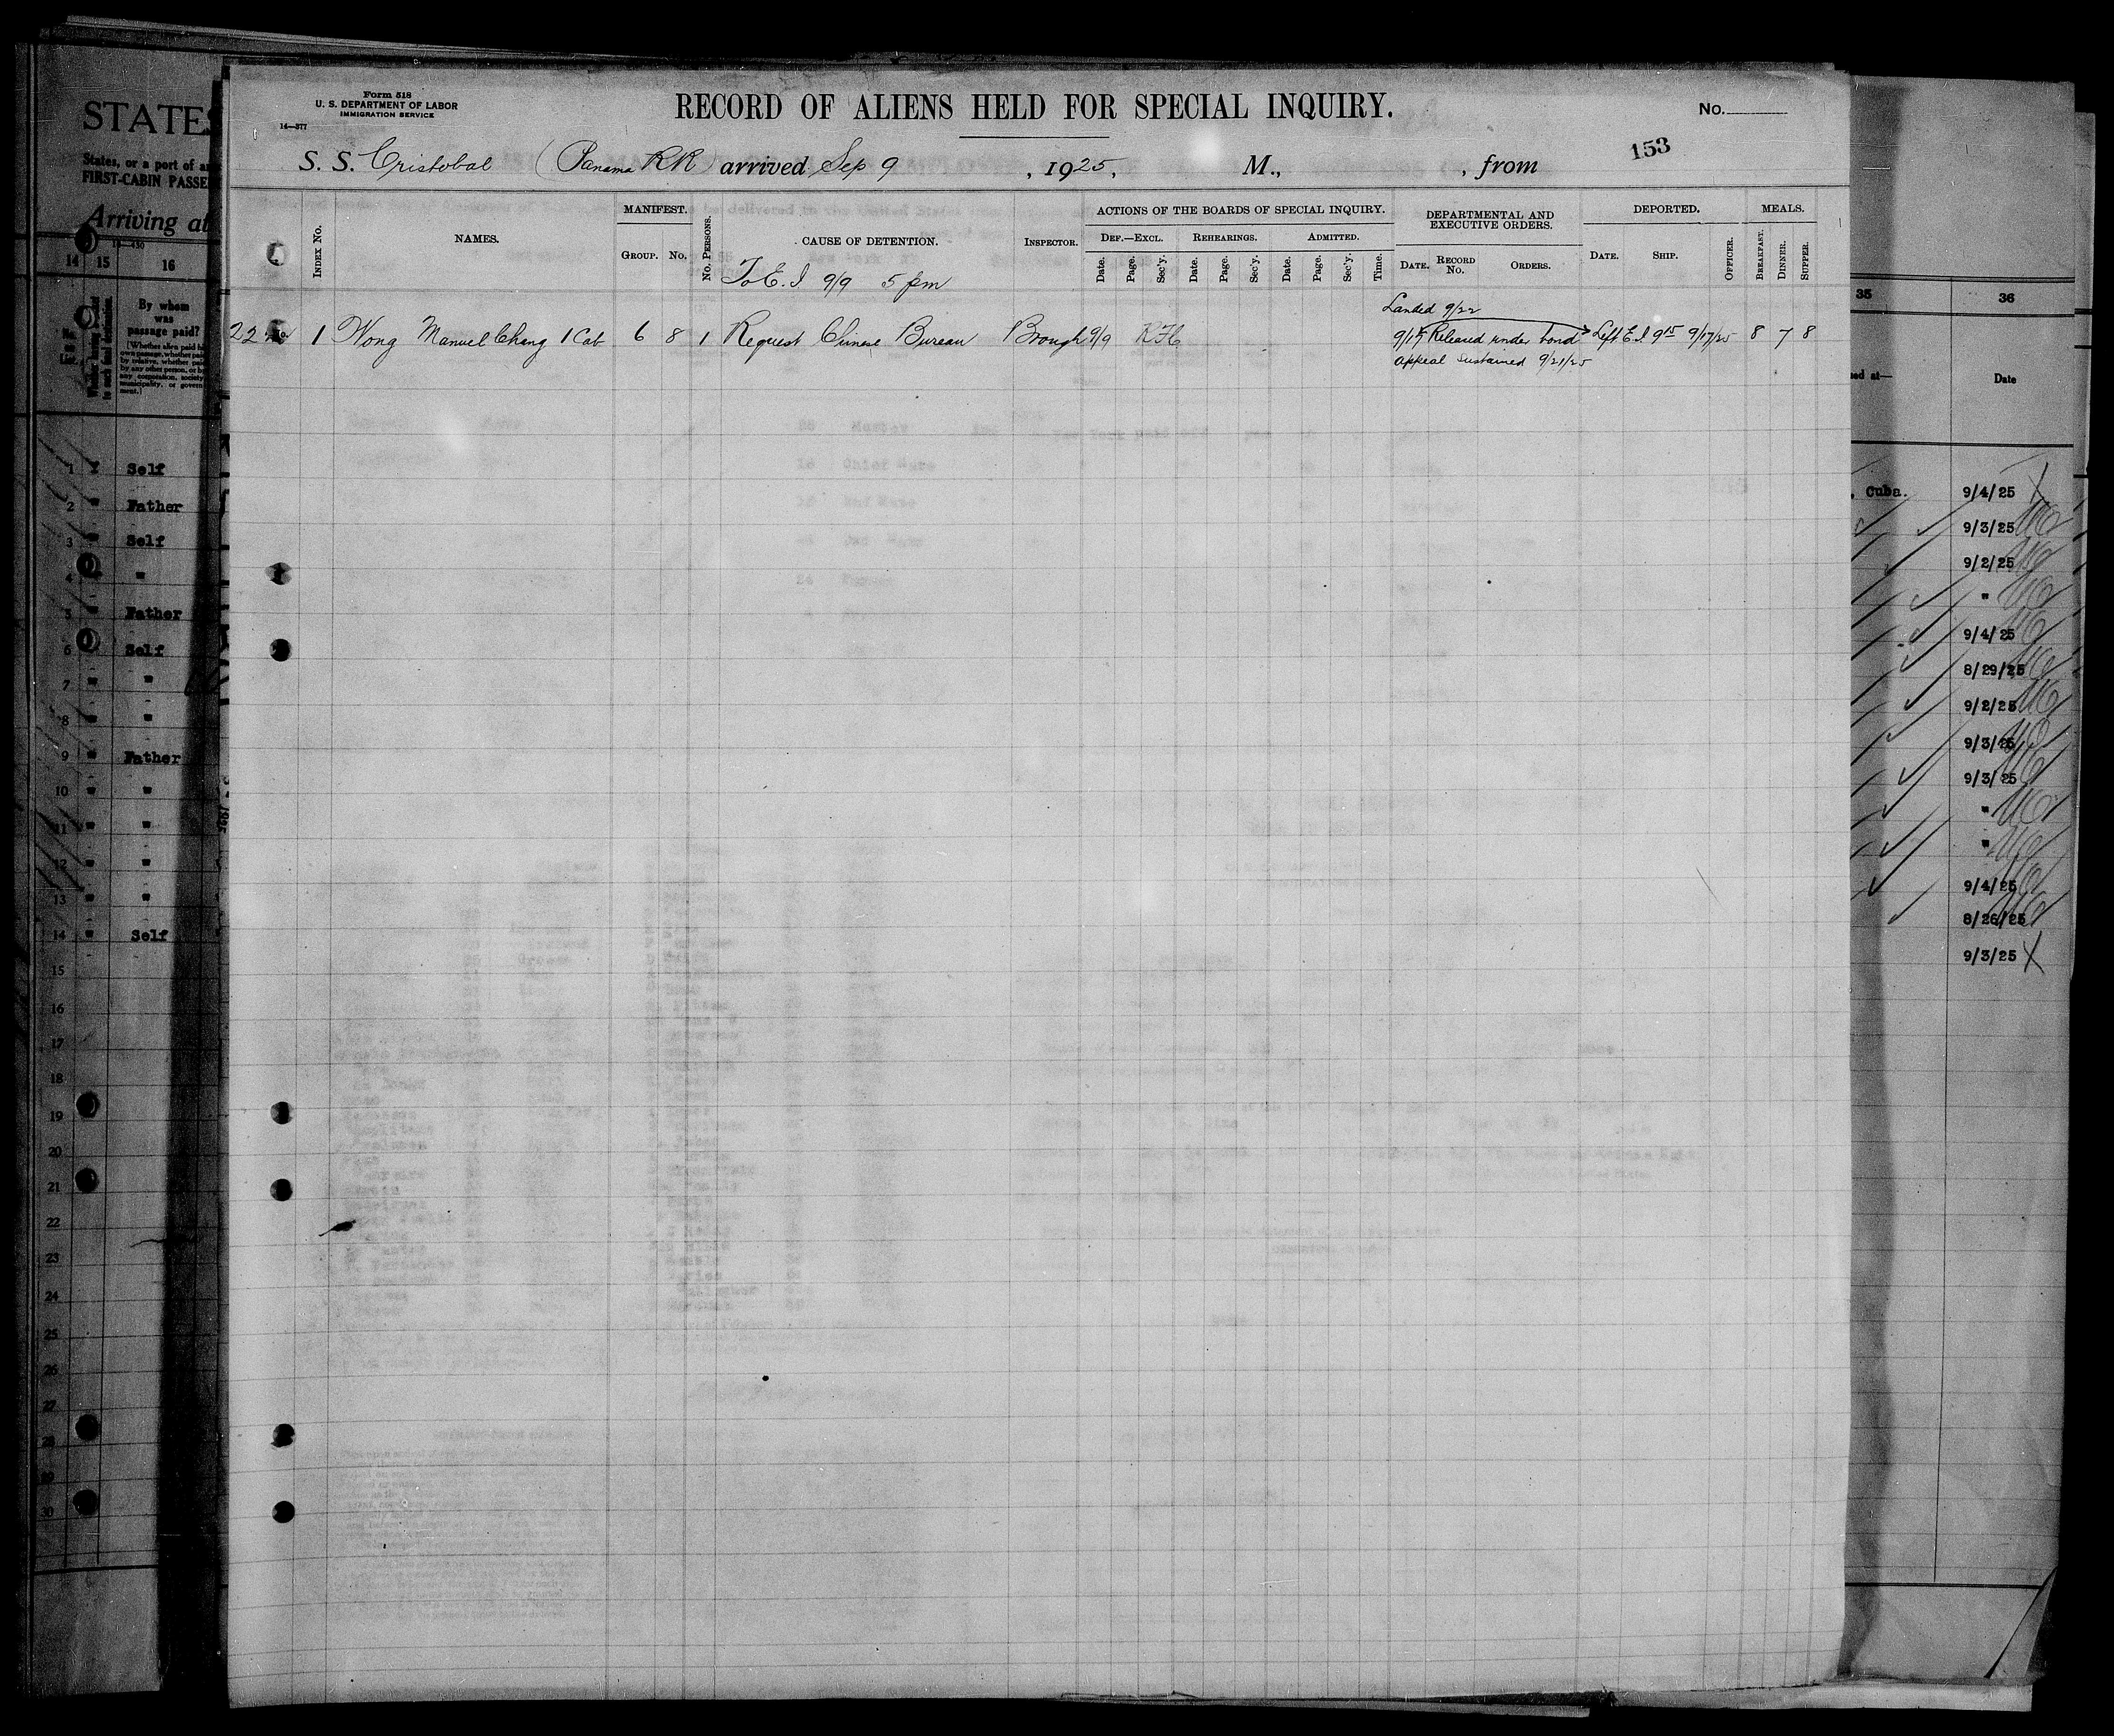 Form 518
U. S. DEPARTMENT OF LABOR
IMMIGRATION SERVICE
14—377
RECORD OF ALIENS HELD FOR SPECIAL INQUIRY.
No.
153
S. S. Cristobal (Panama RR) arrived Sep 9, 1925, M., , from
INDEX No.
NAMES.
MANIFEST.
GROUP. No.
No. PERSONS.
CAUSE OF DETENTION.
To E. I 9/9 5 pm
INSPECTOR.
ACTIONS OF THE BOARDS OF SPECIAL INQUIRY.
DEF.—EXCL. REHEARINGS. ADMITTED.
Date. Page. Sec'y. Date. Page. Sec'y. Date. Page. Sec'y. Time.
DEPARTMENTAL AND
EXECUTIVE ORDERS.
DATE. RECORD No. ORDERS.
DEPORTED.
DATE. SHIP. OFFICER.
MEALS.
BREAKFAST. DINNER. SUPPER.
Landed 9/22
22 1 Wong Manuel Chang 1 Cab 6 8 1 Request Chinese Bureau Brough 9/9 RFH 9/17 Released under bond Left E. I 9 15 9/17/25 8 7 8
appeal sustained 9/21/25
STATES
States, or a port of
FIRST-CABIN PASSE
Arriving at
14 15 16
By whom
was
passage paid?
1 Self
2 " Father
3 " Self
4 " "
5 " Father
6 " Self
7 " "
8 " "
9 " Father
10 " "
11 " "
12 " "
13 " "
14 " Self
15
16
17
18
19
20
21
22
23
24
25
26
27
28
29
30
35 36
ed at— Date
, Cuba. 9/4/25
9/3/25
9/2/25
"
9/4/25
8/29/25
9/2/25
9/3/25
9/3/25
"
"
9/4/25
8/26/25
9/3/25